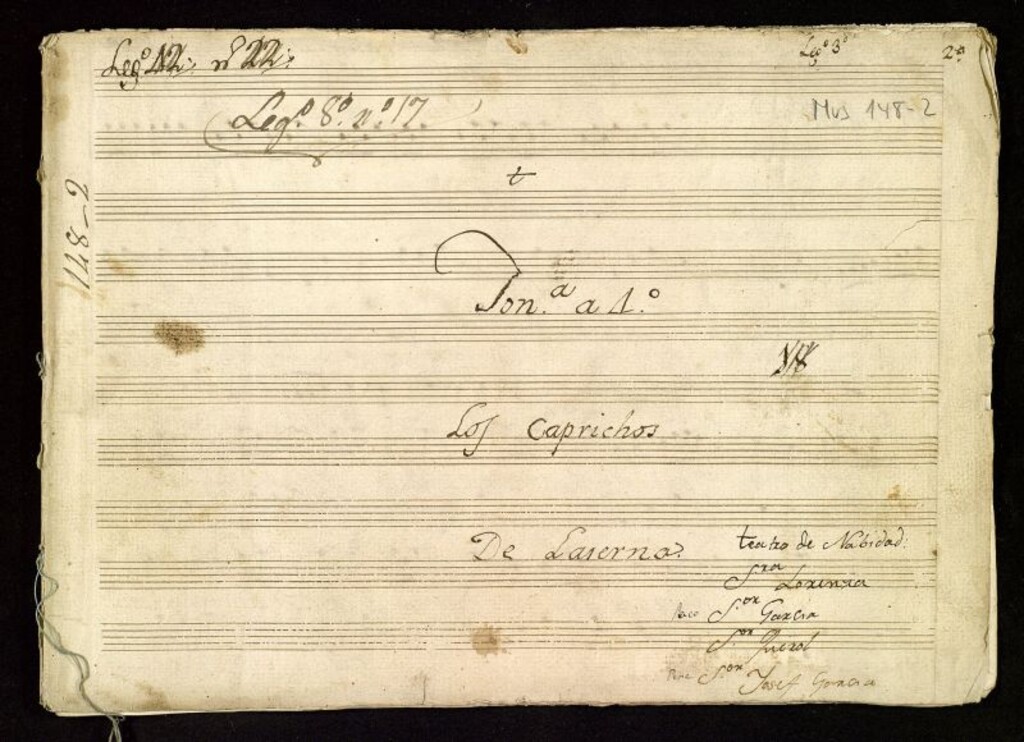 Leg.º 12. nº 22.
Leg.º 3º
2ª
Leg.º 8.º n.º 17
Mus 148-2
148-2
t
Ton.ª a 4.º
Los Caprichos
De Laserna.
teatro de Nabidad.
S.ra Lorenza
S.or Garcia
S.or Querol
S.or Josef Garcia